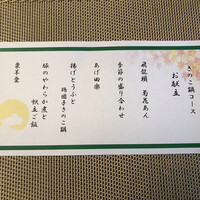 きのこ鍋コース
お献立
飛龍頭　菊花あん
季節の盛り合わせ
あげ田楽
揚げどうふと
鶏団子きのこ鍋
豚のやわらか煮と
帆立ご飯
栗羊羹